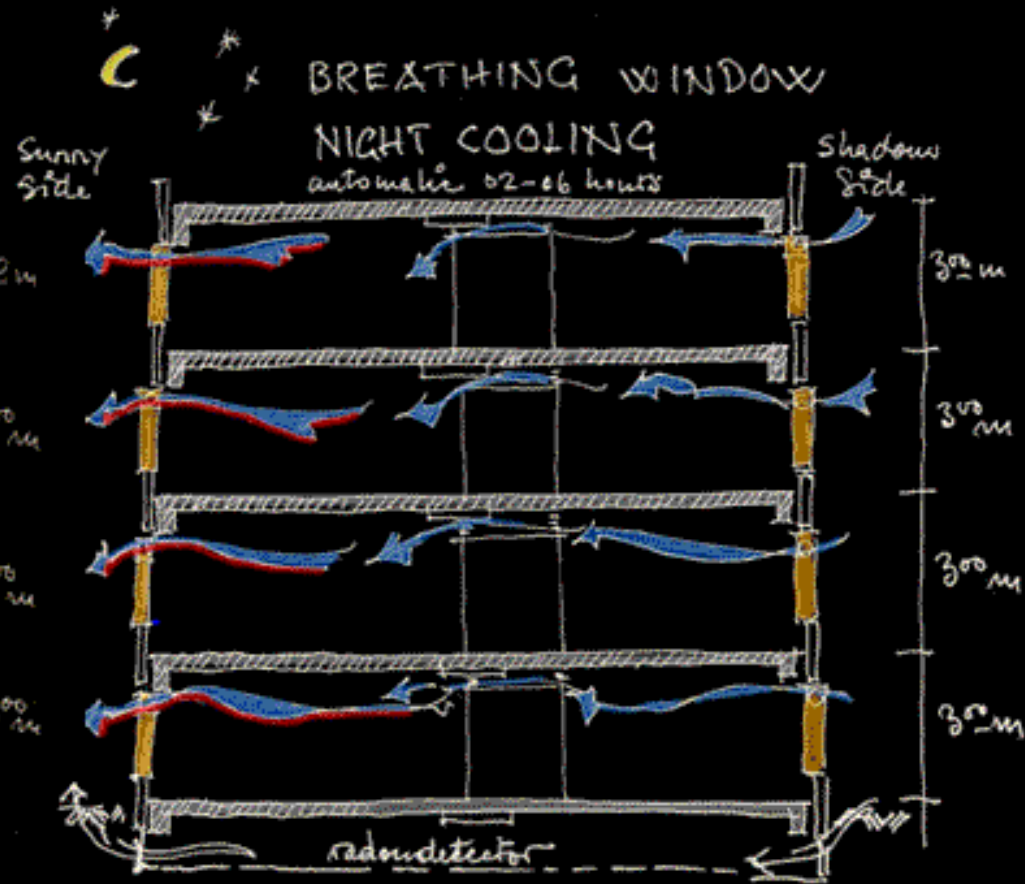 BREATHING WINDOW
NIGHT COOLING
automatic 02-06 hours
Sunny
Side
Shadow
Side
m
3⁰⁰ m
m
3⁰⁰ m
m
3⁰⁰ m
m
3⁰⁰ m
radondetector